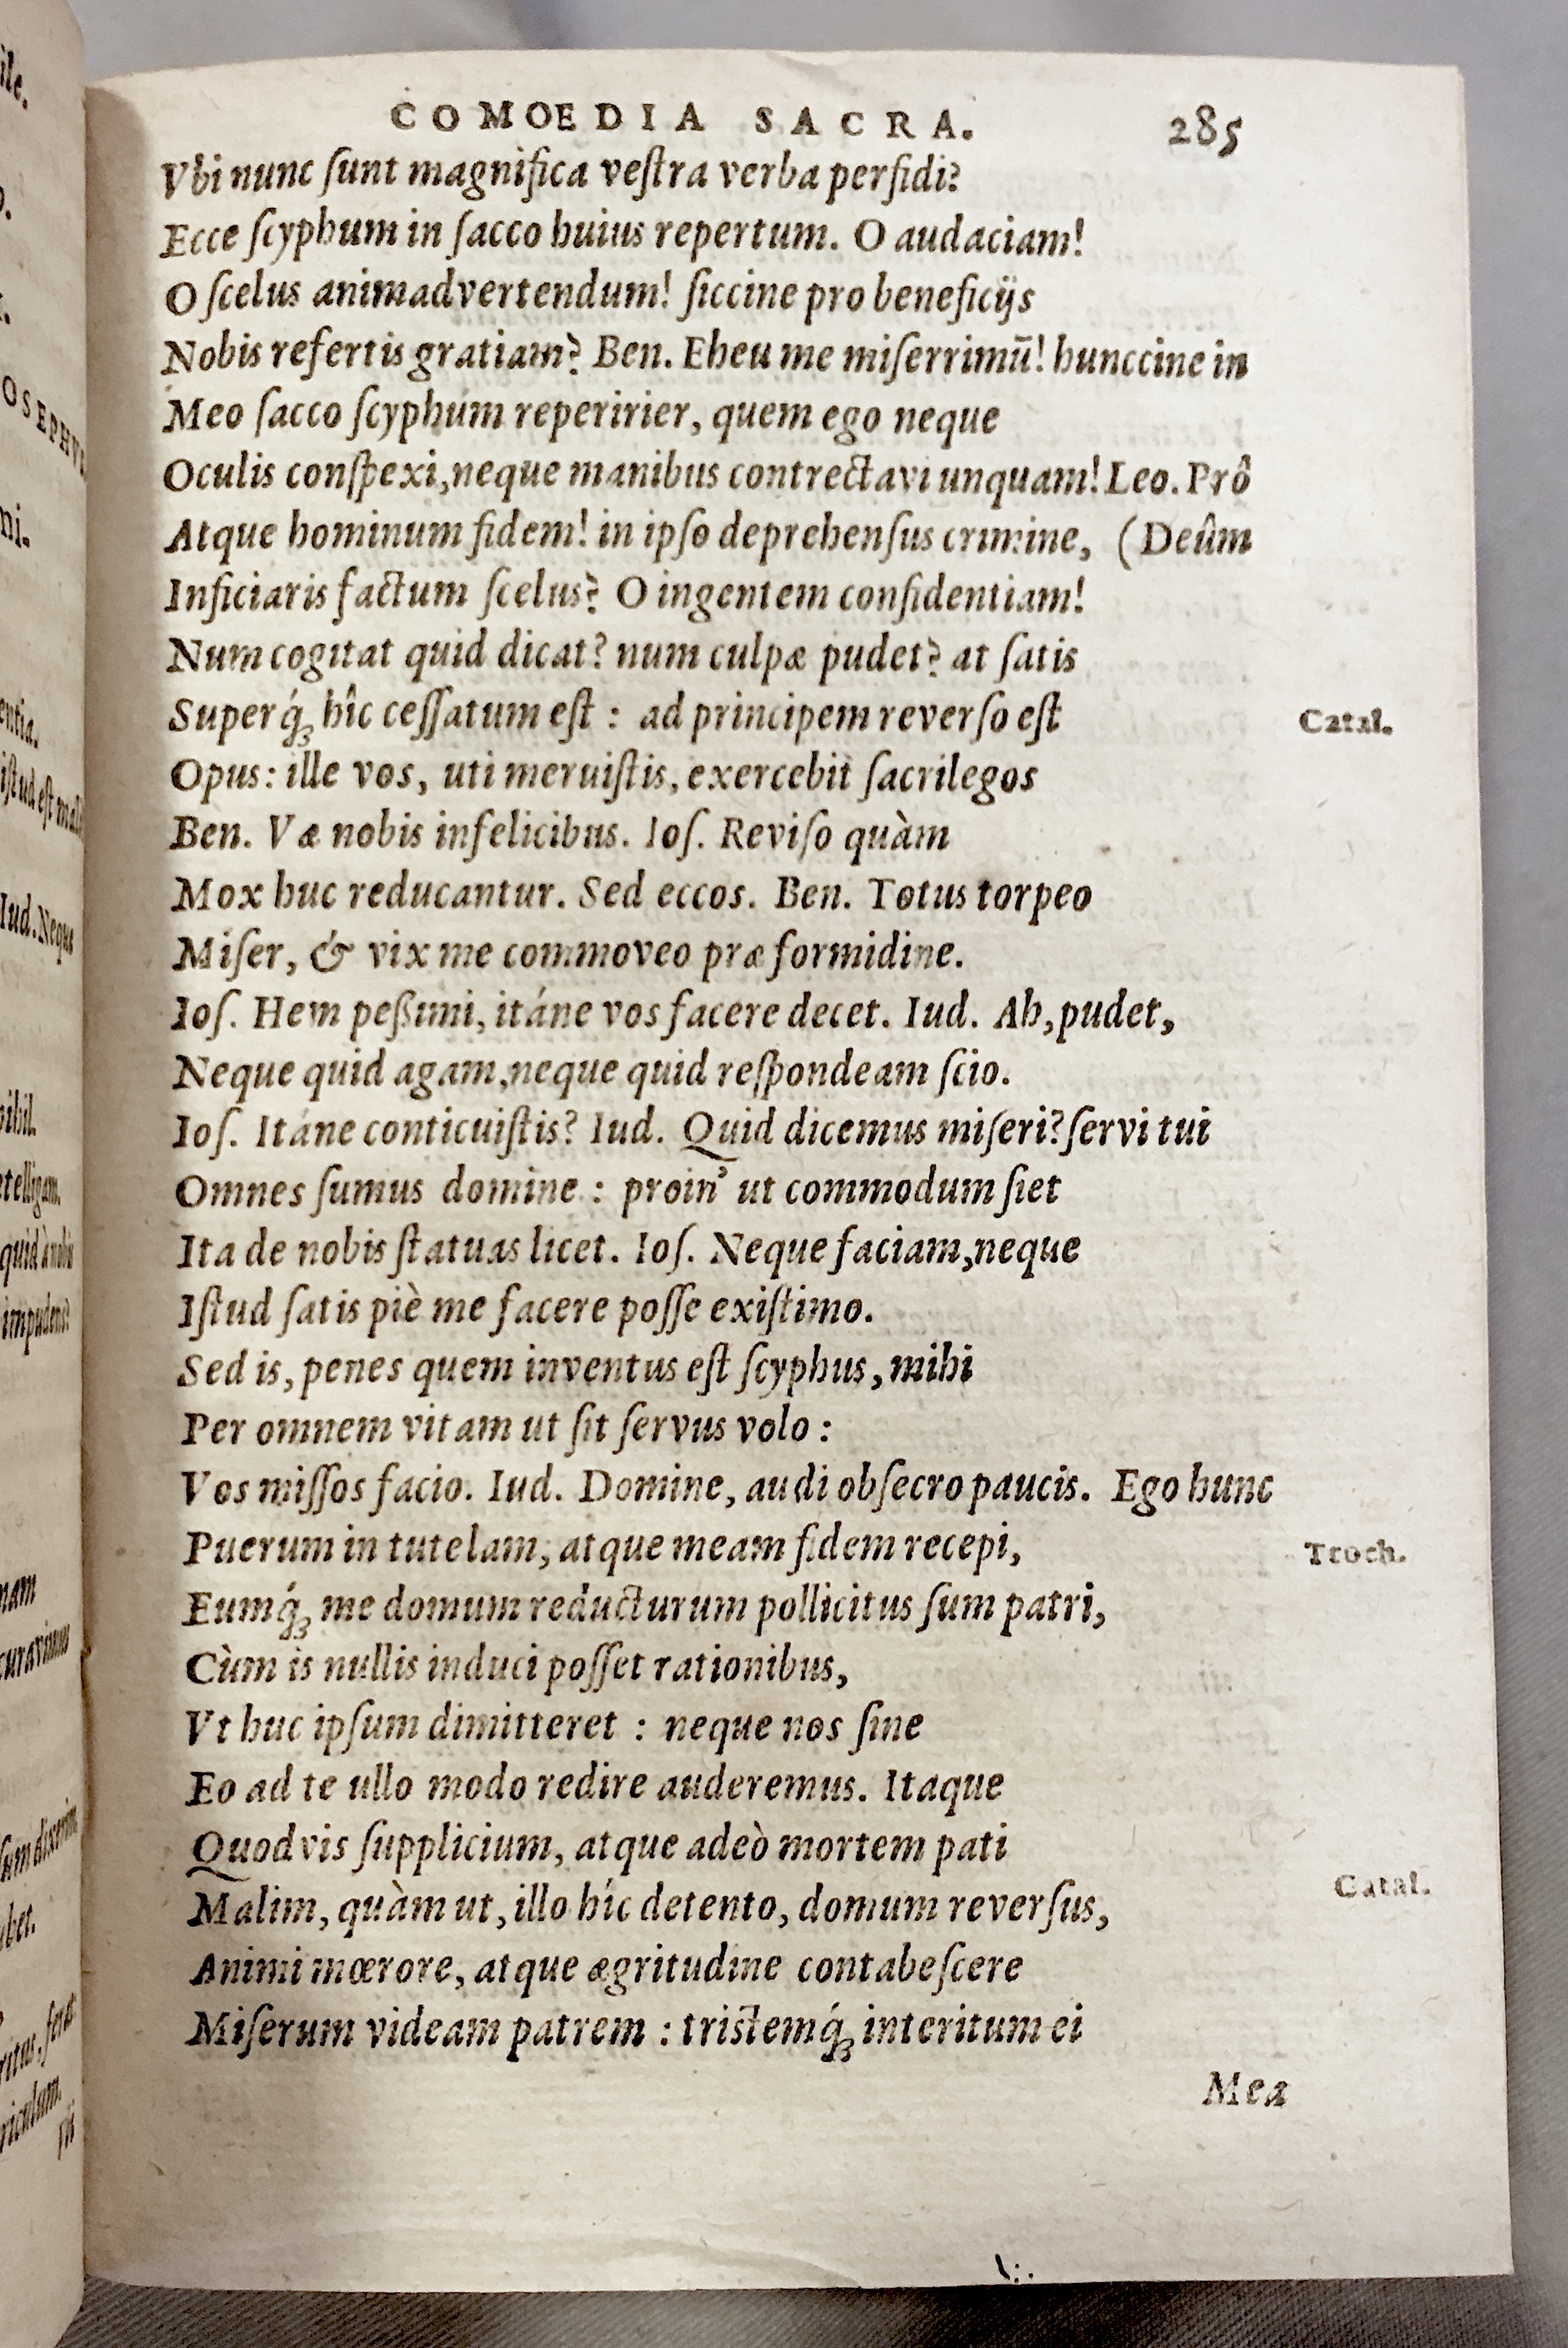 COMOEDIA SACRA. 285
Vbi nunc ſunt magnifica veſtra verba perfidi?
Ecce ſcyphum in ſacco huius repertum. O audaciam!
O ſcelus animadvertendum! ſiccine pro beneficijs
Nobis refertis gratiam? Ben. Eheu me miſerrimū! hunccine in
Meo ſacco ſcyphum reperirier, quem ego neque
Oculis conſpexi, neque manibus contrectavi unquam! Leo. Prô
Atque hominum fidem! in ipſo deprehenſus crimine, (Deûm
Inficiaris factum ſcelus? O ingentem confidentiam!
Num cogitat quid dicat? num culpæ pudet? at ſatis
Superq́ꝫ hîc ceſſatum eſt : ad principem reverſo eſt
Catal.
Opus: ille vos, uti meruiſtis, exercebit ſacrilegos
Ben. Væ nobis infelicibus. Ioſ. Reviſo quàm
Mox huc reducantur. Sed eccos. Ben. Totus torpeo
Miſer, & vix me commoveo præ formidine.
Ioſ. Hem peßimi, itáne vos facere decet. Iud. Ah, pudet,
Neque quid agam, neque quid reſpondeam ſcio.
Ioſ. Itáne conticuiſtis? Iud. Quid dicemus miſeri? ſervi tui
Omnes ſumus domine : proin' ut commodum ſiet
Ita de nobis ſtatuas licet. Ioſ. Neque faciam, neque
Iſtud ſatis piè me facere poſſe exiſtimo.
Sed is, penes quem inventus eſt ſcyphus, mihi
Per omnem vitam ut ſit ſervus volo :
Vos miſſos facio. Iud. Domine, audi obſecro paucis. Ego hunc
Puerum in tutelam, atque meam fidem recepi,
Troch.
Eumq́ꝫ me domum reducturum pollicitus ſum patri,
Cùm is nullis induci poſſet rationibus,
Vt huc ipſum dimitteret : neque nos ſine
Eo ad te ullo modo redire auderemus. Itaque
Quodvis ſupplicium, atque adeò mortem pati
Malim, quàm ut, illo híc detento, domum reverſus,
Catal.
Animi mœrore, atque ægritudine contabeſcere
Miſerum videam patrem : triſtemq́ꝫ interitum ei
Mea